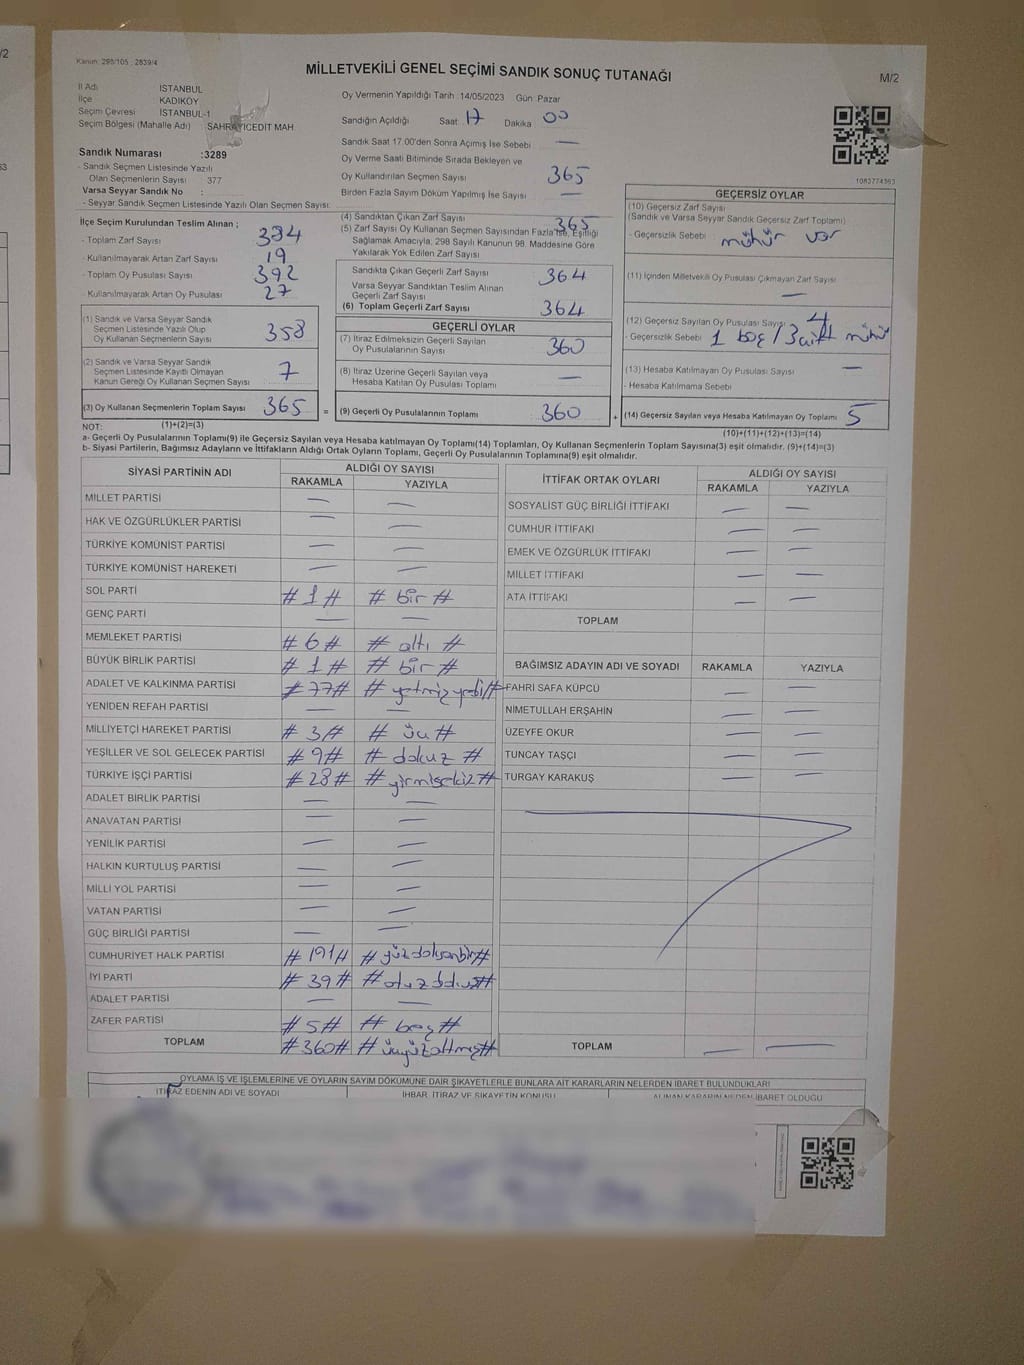 /2
Kanun: 298/105, 2839/4
MİLLETVEKİLİ GENEL SEÇİMİ SANDIK SONUÇ TUTANAĞI
M/2
İl Adı İSTANBUL
İlçe KADIKÖY
Seçim Çevresi İSTANBUL-1
Seçim Bölgesi (Mahalle Adı) : SAHRAYICEDİT MAH
Sandık Numarası :3289
- Sandık Seçmen Listesinde Yazılı
Olan Seçmenlerin Sayısı : 377
Varsa Seyyar Sandık No :
- Seyyar Sandık Seçmen Listesinde Yazılı Olan Seçmen Sayısı:
Oy Vermenin Yapıldığı Tarih :14/05/2023 Gün: Pazar
Sandığın Açıldığı Saat 17 Dakika 00
Sandık Saat 17.00'den Sonra Açımış İse Sebebi —
Oy Verme Saati Bitiminde Sırada Bekleyen ve
Oy Kullandırılan Seçmen Sayısı 365
Birden Fazla Sayım Döküm Yapılmış İse Sayısı —
1083774363
İlçe Seçim Kurulundan Teslim Alınan ;
- Toplam Zarf Sayısı 384
- Kullanılmayarak Artan Zarf Sayısı 19
- Toplam Oy Pusulası Sayısı 392
- Kullanılmayarak Artan Oy Pusulası 27
(1) Sandık ve Varsa Seyyar Sandık
Seçmen Listesinde Yazılı Olup
Oy Kullanan Seçmenlerin Sayısı 358
(2) Sandık ve Varsa Seyyar Sandık
Seçmen Listesinde Kayıtlı Olmayan
Kanun Gereği Oy Kullanan Seçmen Sayısı 7
(3) Oy Kullanan Seçmenlerin Toplam Sayısı 365 =
(4) Sandıktan Çıkan Zarf Sayısı 365
(5) Zarf Sayısı Oy Kullanan Seçmen Sayısından Fazla İse, Eşitliği
Sağlamak Amacıyla, 298 Sayılı Kanunun 98. Maddesine Göre
Yakılarak Yok Edilen Zarf Sayısı
Sandıkta Çıkan Geçerli Zarf Sayısı 364
Varsa Seyyar Sandıktan Teslim Alınan
Geçerli Zarf Sayısı
(6) Toplam Geçerli Zarf Sayısı 364
GEÇERLİ OYLAR
(7) İtiraz Edilmeksizin Geçerli Sayılan
Oy Pusulasının Sayısı 360
(8) İtiraz Üzerine Geçerli Sayılan veya
Hesaba Katılan Oy Pusulası Toplamı —
(9) Geçerli Oy Pusulalarının Toplamı 360 +
GEÇERSİZ OYLAR
(10) Geçersiz Zarf Sayısı
(Sandık ve Varsa Seyyar Sandık Geçersiz Zarf Toplamı)
- Geçersizlik Sebebi mühür var
(11) İçinden Milletvekili Oy Pusulası Çıkmayan Zarf Sayısı —
(12) Geçersiz Sayılan Oy Pusulası Sayısı 4
- Geçersizlik Sebebi 1 boş / 3 çift mühür
(13) Hesaba Katılmayan Oy Pusulası Sayısı —
- Hesaba Katılmama Sebebi
(14) Geçersiz Sayılan veya Hesaba Katılmayan Oy Toplamı 5
NOT: (1)+(2)=(3) (10)+(11)+(12)+(13)=(14)
a- Geçerli Oy Pusulalarının Toplamı(9) ile Geçersiz Sayılan veya Hesaba katılmayan Oy Toplamı(14) Toplamları, Oy Kullanan Seçmenlerin Toplam Sayısına(3) eşit olmalıdır. (9)+(14)=(3)
b- Siyasi Partilerin, Bağımsız Adayların ve İttifakların Aldığı Ortak Oyların Toplamı, Geçerli Oy Pusulalarının Toplamına(9) eşit olmalıdır.
SİYASİ PARTİNİN ADI ALDIĞI OY SAYISI
RAKAMLA YAZIYLA
MİLLET PARTİSİ — —
HAK VE ÖZGÜRLÜKLER PARTİSİ — —
TÜRKİYE KOMÜNİST PARTİSİ — —
TÜRKİYE KOMÜNİST HAREKETİ — —
SOL PARTİ #1# #bir#
GENÇ PARTİ — —
MEMLEKET PARTİSİ #6# #altı#
BÜYÜK BİRLİK PARTİSİ #1# #bir#
ADALET VE KALKINMA PARTİSİ #77# #yetmişyedi#
YENİDEN REFAH PARTİSİ — —
MİLLİYETÇİ HAREKET PARTİSİ #3# #üç#
YEŞİLLER VE SOL GELECEK PARTİSİ #9# #dokuz#
TÜRKİYE İŞÇİ PARTİSİ #28# #yirmisekiz#
ADALET BİRLİK PARTİSİ — —
ANAVATAN PARTİSİ — —
YENİLİK PARTİSİ — —
HALKIN KURTULUŞ PARTİSİ — —
MİLLİ YOL PARTİSİ — —
VATAN PARTİSİ — —
GÜÇ BİRLİĞİ PARTİSİ — —
CUMHURİYET HALK PARTİSİ #191# #yüzdoksanbir#
İYİ PARTİ #39# #otuzdokuz#
ADALET PARTİSİ — —
ZAFER PARTİSİ #5# #beş#
TOPLAM #360# #üçyüzaltmış#
İTTİFAK ORTAK OYLARI ALDIĞI OY SAYISI
RAKAMLA YAZIYLA
SOSYALİST GÜÇ BİRLİĞİ İTTİFAKI — —
CUMHUR İTTİFAKI — —
EMEK VE ÖZGÜRLÜK İTTİFAKI — —
MİLLET İTTİFAKI — —
ATA İTTİFAKI — —
TOPLAM
BAĞIMSIZ ADAYIN ADI VE SOYADI RAKAMLA YAZIYLA
FAHRİ SAFA KÜPCÜ — —
NİMETULLAH ERŞAHİN — —
ÜZEYFE OKUR — —
TUNCAY TAŞÇI — —
TURGAY KARAKUŞ — —
TOPLAM — —
OYLAMA İŞ VE İŞLEMLERİNE VE OYLARIN SAYIM DÖKÜMÜNE DAİR ŞİKAYETLERLE BUNLARA AİT KARARLARIN NELERDEN İBARET BULUNDUKLARI
İTİRAZ EDENİN ADI VE SOYADI İHBAR, İTİRAZ VE ŞİKAYETİN KONUSU ALINAN KARARIN NEDEN İBARET OLDUĞU